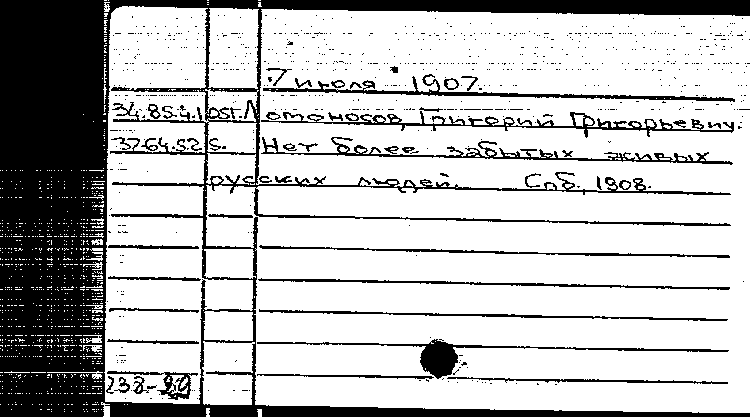 7 июля 1907.
34.85.4.1 OST. Λomoносов, Григорий Григорьевич.
37.64.52 S. Нет более забытых живых
русских людей. Спб., 1908.
238-